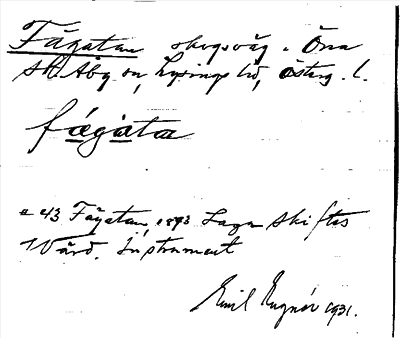 Fägatan skogsväg i Öna
St. Åby sn, Lysings hd, Österg. l.
fägata
a 43 Fägatan, 1873 Laga Skiftes
Värd. Instrument
Emil Rugnér 1931.